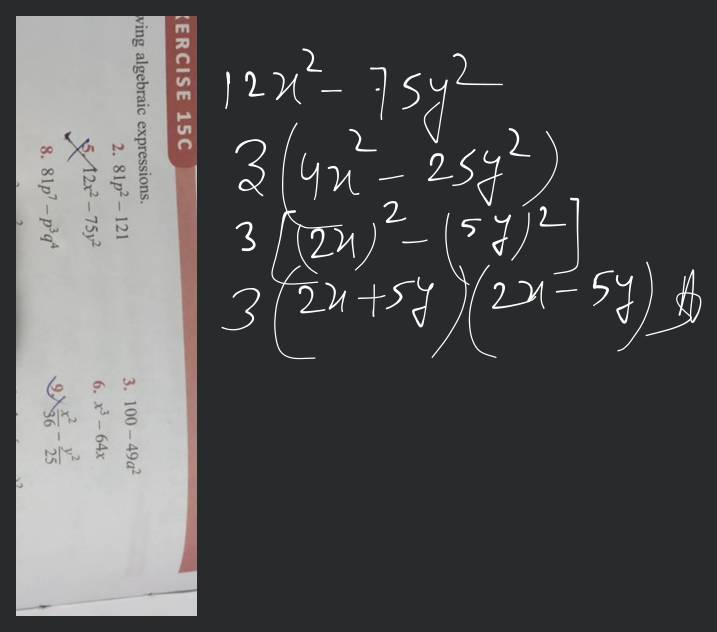 EXERCISE 15C
ving algebraic expressions.
2. 81p² – 121
3. 100 – 49a²
5. 12x² – 75y²
6. x³ – 64x
8. 81p⁷ – p³q⁴
9. x²/36 – y²/25
12x² – 75y²
3(4x² – 25y²)
3[(2x)² – (5y)²]
3(2x+5y)(2x – 5y) A